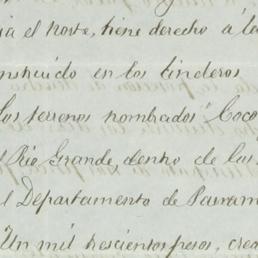 ia el norte, tiene derecho á la
nstruido en los linderos
los terrenos nombrados "Coco
l Rio Grande, dentro de los
l Departamento de Parram
Un mil trescientos pesos, cre